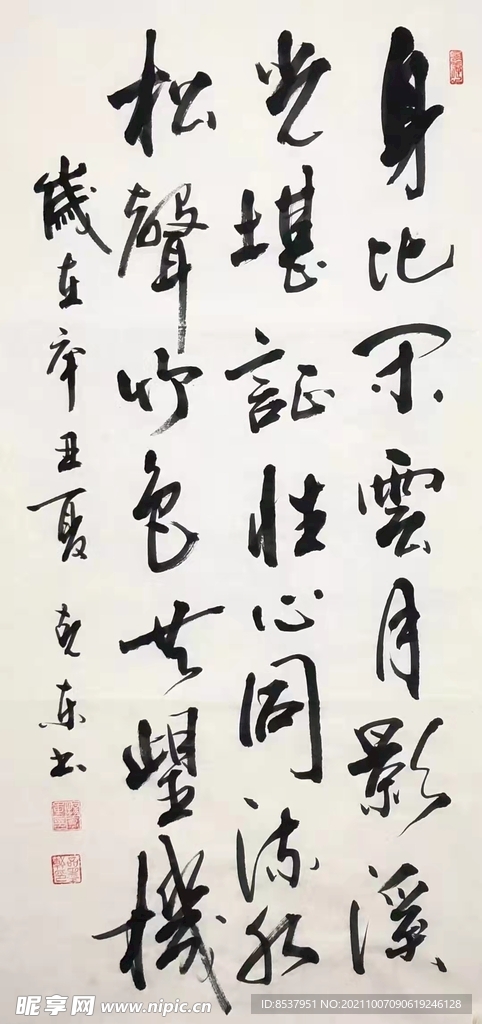 身比闲雲月影溪
光堪証性心同流水
松聲竹色共望機
歲在辛丑夏 克东书
昵享网 www.nipic.cn
ID:8537951 NO:20211007090619246128